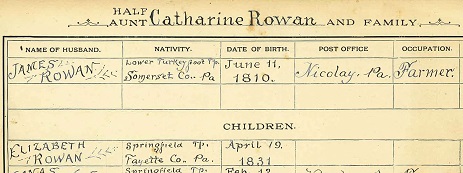 HALF
AUNT Catharine Rowan AND FAMILY
NAME OF HUSBAND. NATIVITY. DATE OF BIRTH. POST OFFICE OCCUPATION.
JAMES Lower Turkeyfoot Tp. June 11,
ROWAN Somerset Co. Pa 1810. Nicolay. Pa. Farmer.
CHILDREN.
ELIZABETH Springfield Tp. April 19.
ROWAN Fayette Co. Pa. 1831
Springfield Tp.